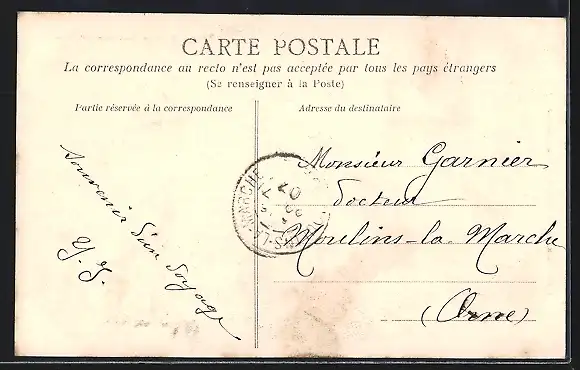 CARTE POSTALE
La correspondance au recto n'est pas acceptée par tous les pays étrangers
(Se renseigner à la Poste)
Partie réservée à la correspondance
Adresse du destinataire
Souvenir d'un voyage
Y. G.
Monsieur Garnier
docteur
Moulins-la-Marche
(Orne)
S-LA-MARCHE
07